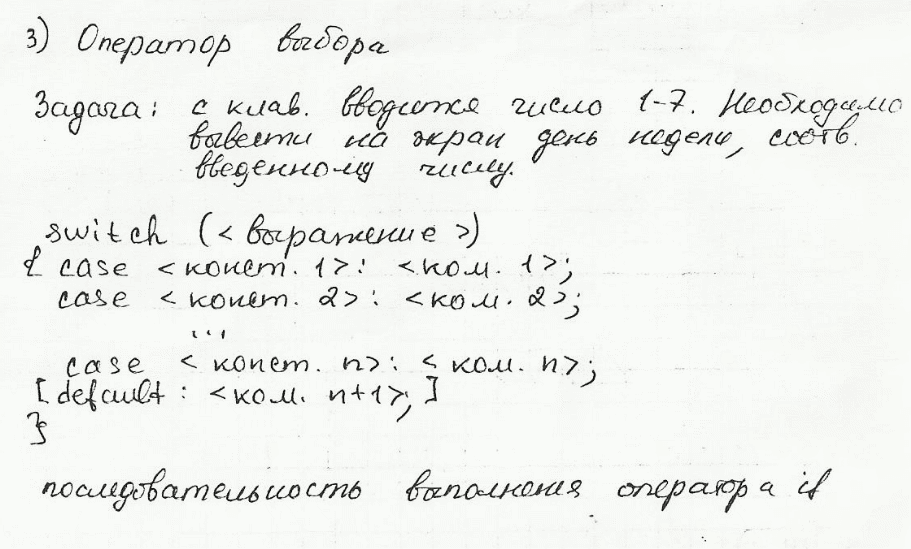 3) Оператор выбора
Задача: с клав. вводится число 1-7. Необходимо
вывести на экран день недели, соотв.
введенному числу.
switch (<выражение>)
{ case <конст. 1>: <ком. 1>;
case <конст. 2>: <ком. 2>;
...
case <конст. n>: <ком. n>;
[default: <ком. n+1>;]
}
последовательность выполнения оператора if